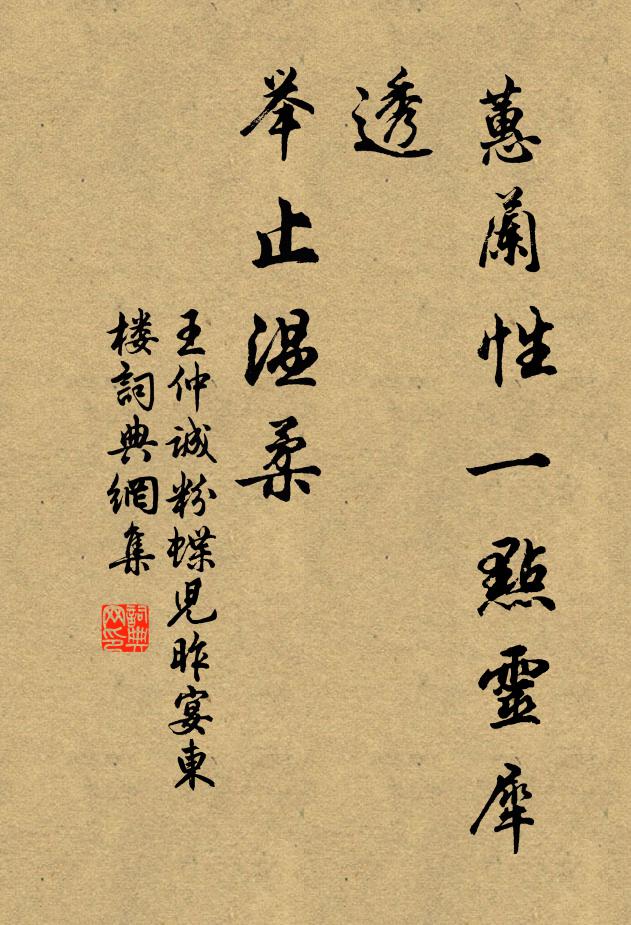 蕙蘭性一點靈犀
透
举止温柔
王仲誠粉蝶児昨宴東
楼詞典網集
詞典
网印